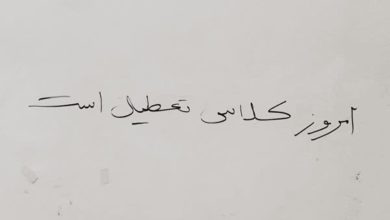 امروز کلاس تعطیل است